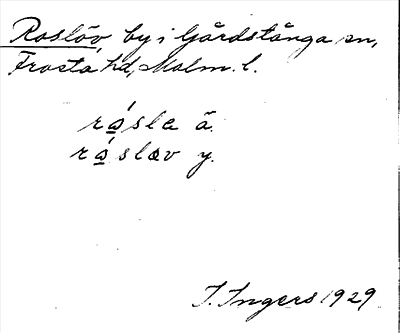 Roslöv by i Gårdstånga sn,
Frosta hd, Malm. l.
rósle ä.
róslov y.
I. Ingers 1929